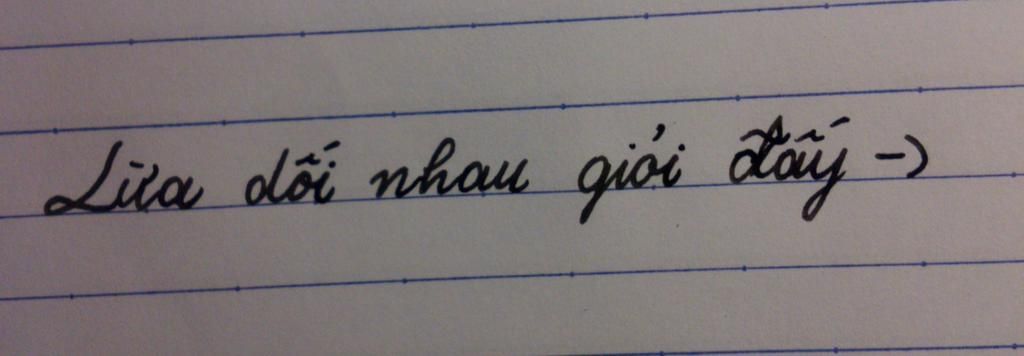 Lừa dối nhau giỏi đấy -)